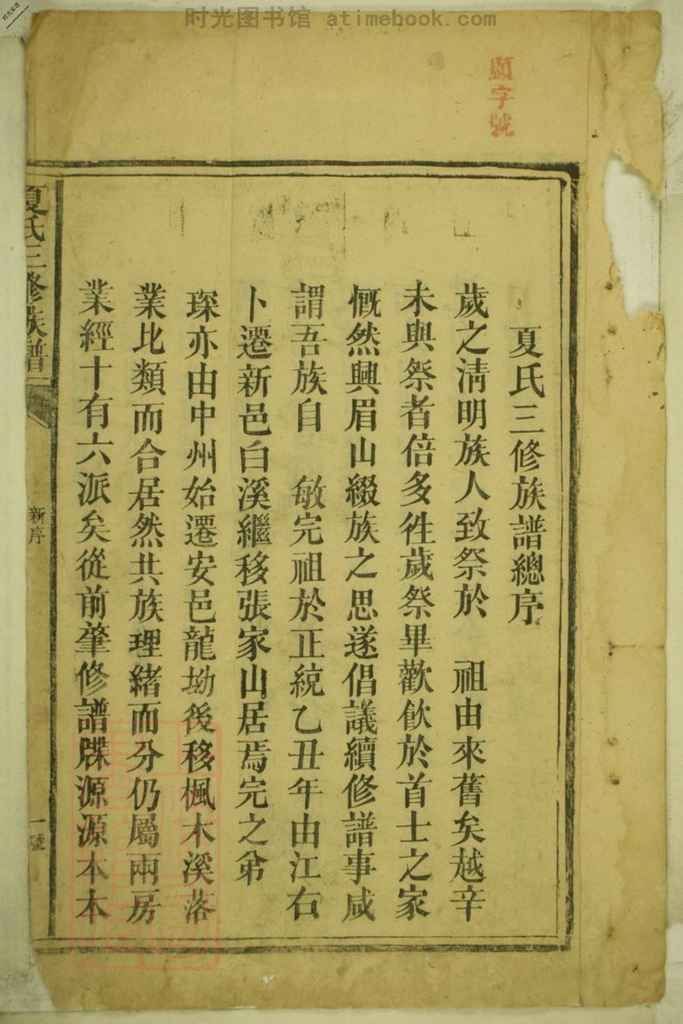 时光图书馆 atimebook.com
顯字號
夏氏三修族譜總序
歲之淸明族人致祭於　祖由來舊矣越辛
未與祭者倍多徃歲祭畢歡飲於首士之家
慨然興眉山綴族之思遂倡議續修譜事咸
謂吾族自　敏完祖於正統乙丑年由江右
卜遷新邑白溪繼移張家山居焉完之弟
琛亦由中州始遷安邑龍坳後移楓木溪落
業比類而合居然共族理緒而分仍屬兩房
業經十有六派矣從前肇修譜牒源源本本
夏氏三修族譜
新序
一號